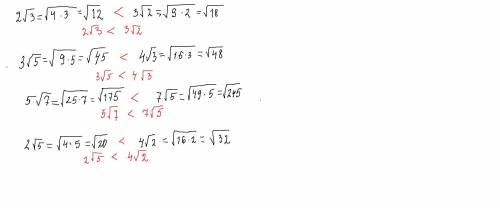 2√3 = √(4·3) = √12 < 3√2 = √(9·2) = √18
2√3 < 3√2
3√5 = √(9·5) = √45 < 4√3 = √(16·3) = √48
3√5 < 4√3
5√7 = √(25·7) = √175 < 7√5 = √(49·5) = √245
5√7 < 7√5
2√5 = √(4·5) = √20 < 4√2 = √(16·2) = √32
2√5 < 4√2